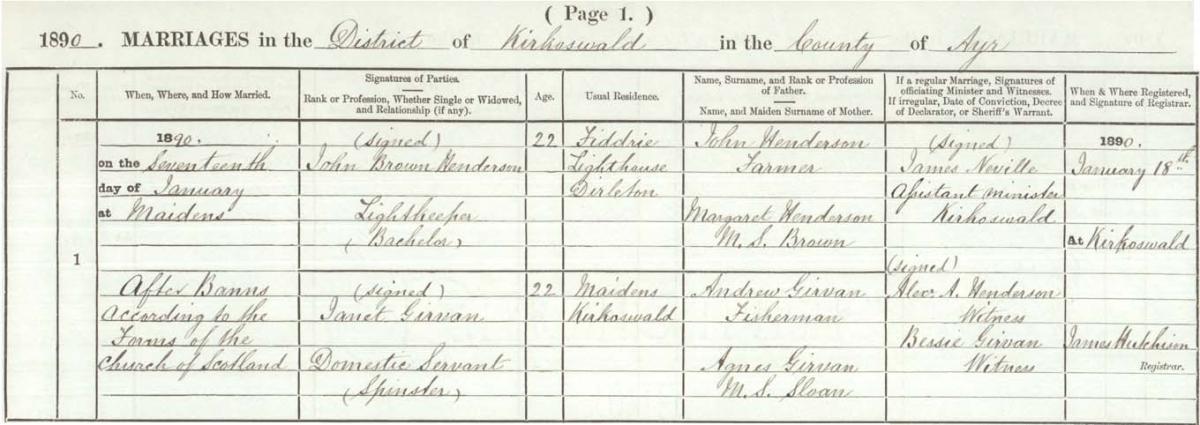 ( Page 1. )
1890. MARRIAGES in the District of Kirkoswald in the County of Ayr
No.
When, Where, and How Married.
Signatures of Parties.
Rank or Profession, Whether Single or Widowed,
and Relationship (if any).
Age.
Usual Residence.
Name, Surname, and Rank or Profession
of Father.
Name, and Maiden Surname of Mother.
If a regular Marriage, Signatures of
officiating Minister and Witnesses.
If irregular, Date of Conviction, Decree
of Declarator, or Sheriff's Warrant.
When & Where Registered,
and Signature of Registrar.
1
1890.
on the Seventeenth
day of January
at Maidens
After Banns
according to the
Forms of the
Church of Scotland
(signed)
John Brown Henderson
Lightkeeper
(Bachelor)
(signed)
Janet Girvan
Domestic Servant
(Spinster)
22
22
Fiddrie
Lighthouse
Dirleton
Maidens
Kirkoswald
John Henderson
Farmer
Margaret Henderson
M.S. Brown
Andrew Girvan
Fisherman
Agnes Girvan
M.S. Sloan
(signed)
James Neville
Assistant minister
Kirkoswald
(signed)
Alex. A. Henderson
Witness
Bessie Girvan
Witness
1890.
January 18th
At Kirkoswald
James Hutchison
Registrar.